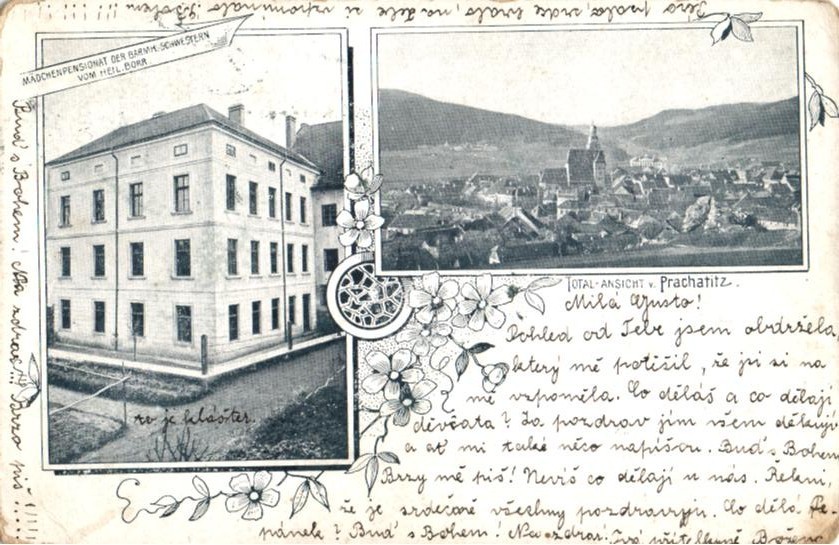 MÄDCHENPENSIONAT DER BARMH. SCHWESTERN
VOM HEIL. BORR.
TOTAL-ANSICHT v. Prachatitz.
to je klášter.
Milá Gusto!
Pohled od Tebe jsem obdržela,
který mě potěšil, že jsi si na
mě vzpoměla. Co děláš a co dělají
děvčata? Za pozdrav jim všem děkuji
a ať mi také něco napíšou. Buď s Bohem
Brzy mě piš! Nevíš co dělají u nás. Řekni,
že je srdečně všechny pozdravuji. Co dělá Pe-
pánek? Buď s Bohem! Na zdrar! Tvá přítelkyně Božena
Buď s Bohem! Na zdrar!! Brzo piš!!!!!